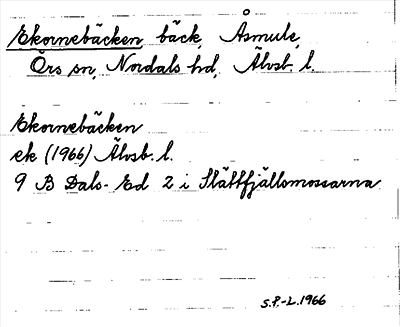 Ekornebäcken, bäck, Åsmule,
Örs sn, Nordals hd, Älvsb. l.
Ekornebäcken
ek (1966) Älvsb. l.
9 B Dals-Ed 2 i Slättfjällsmossarna
S.P.-L. 1966